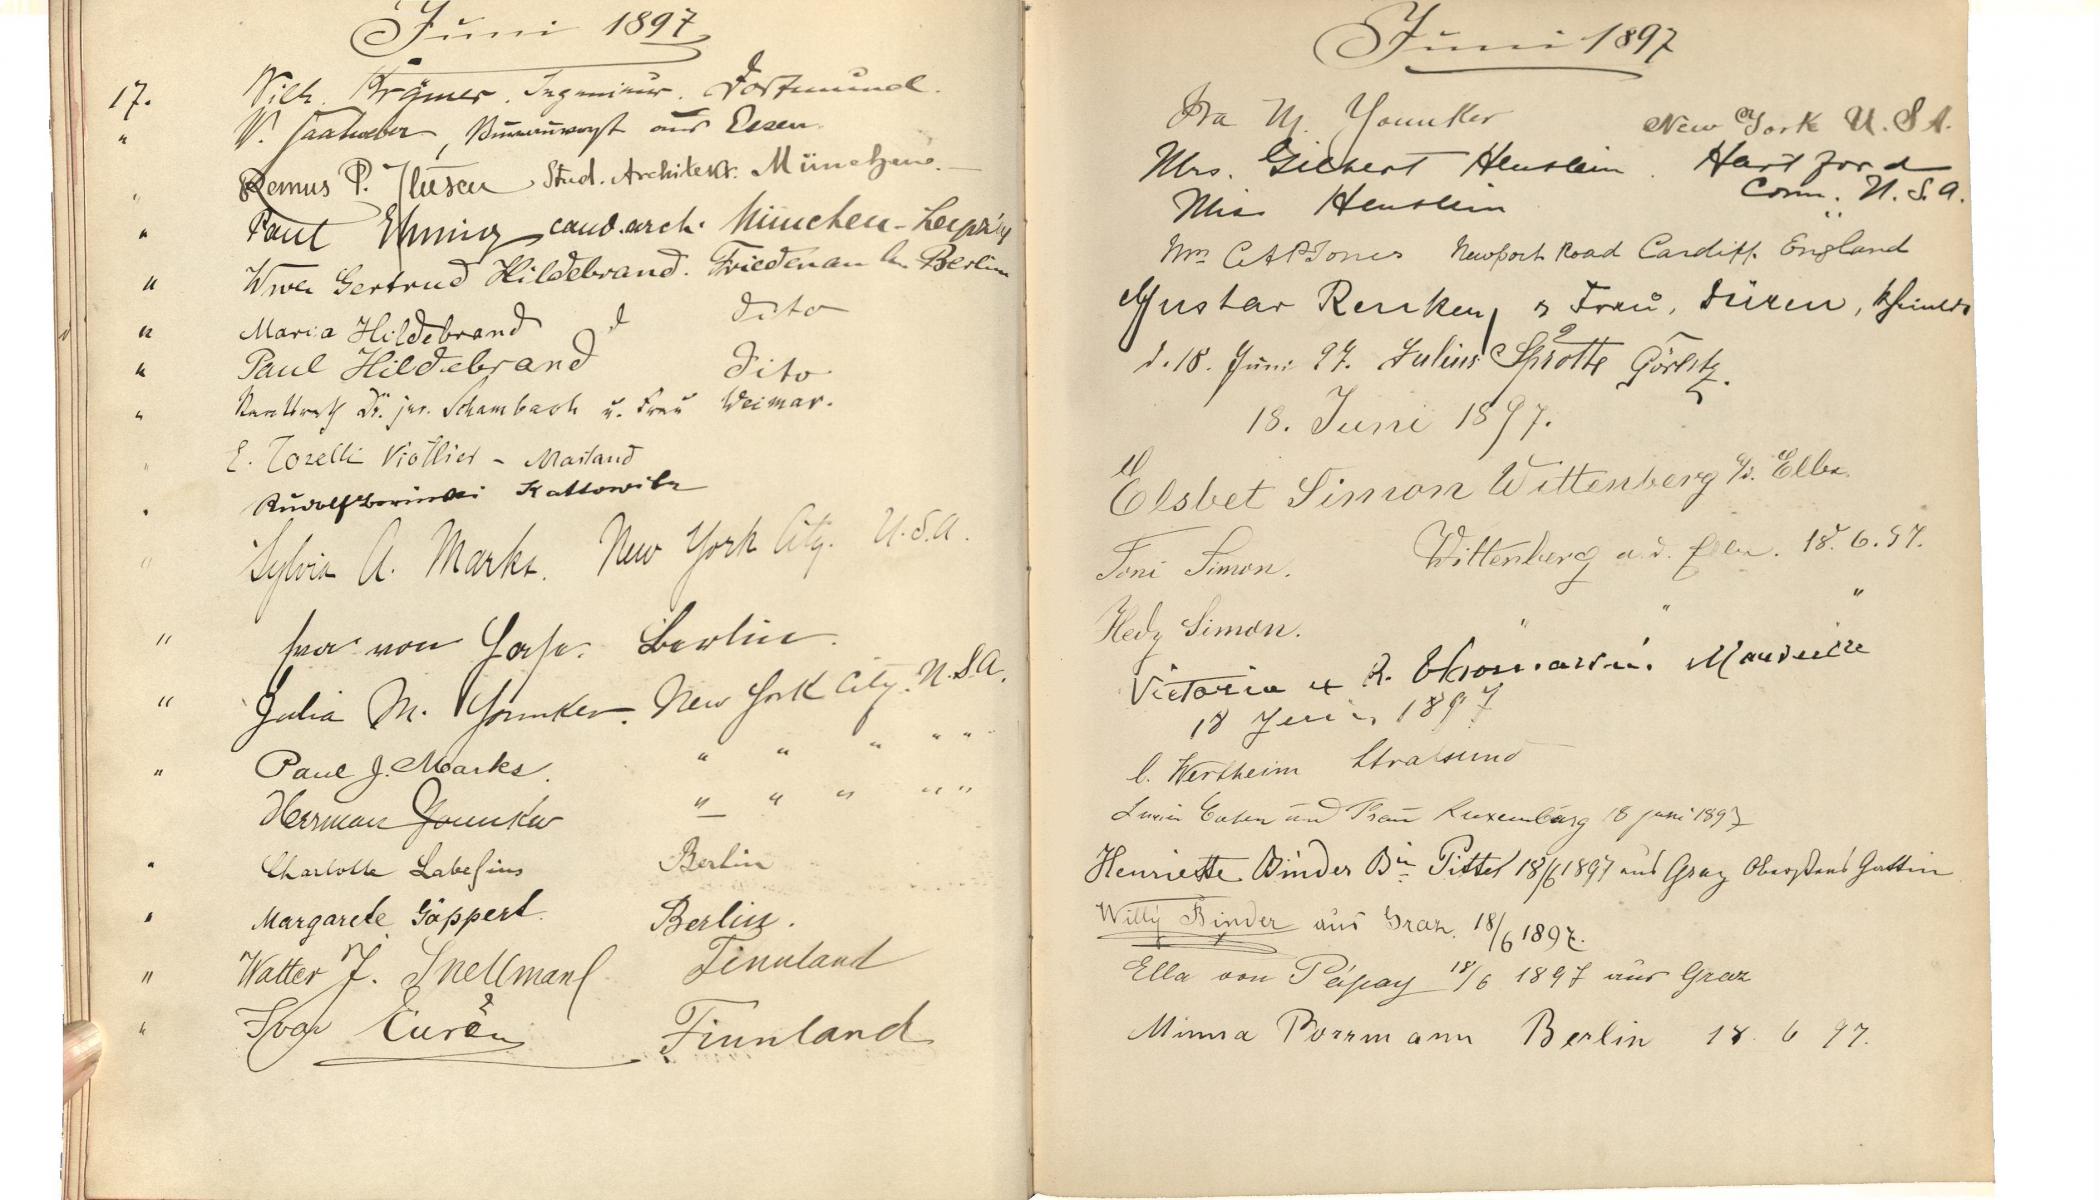 Juni 1897
17. Wilh. Krämer. Ingenieur. Dortmund.
" W. aus Essen.
" Remus P. Stud. Architekt. München. —
" Paul Ehmig cand. arch. München - Leipzig
" Wwe Gertrud Hildebrand. Friedenau b. Berlin
" Maria Hildebrand dito
" Paul Hildebrand dito
" Dr. jur. Schambach u. Frau Weimar.
" E. Torelli Viollier - Mailand
" Rudolf Kattowitz
" Sylvia A. Marks. New York City. U.S.A.
" von Berlin.
" Julia M. Younker. New York City. U.S.A.
" Paul J. Marks. " " " " "
Herman Younker " " " " "
" Charlotte Labesius Berlin
" Margarete Göppert. Berlin.
" Walter J. Snellman Finnland
" Ivar Eurén Finnland
Juni 1897
Ira M. Younker New York U.S.A.
Mrs. Gilbert Heublein. Hartford
Miss Heublein Conn. U.S.A.
Jones Newport Road Cardiff. England
Gustav Renker, & Frau, Düren, Rheinld
d. 18. Juni 97. Julius Sprotte Görlitz.
18. Juni 1897.
Elsbet Simon Wittenberg a/d. Elbe.
Toni Simon. Wittenberg a. d. Elbe. 18.6.97.
Hedy Simon. " " "
Victoria & R. Marseille
18 Juin 1897
C. Wertheim Stralsund
und Frau Luxemburg 18 juni 1897
Henriette Binder Bin Pittel 18/6 1897 aus Graz Oberstens Gattin
Willy Binder aus Graz. 18/6 1897.
Ella von Pápay 18/6 1897 aus Graz
Minna Porrmann Berlin 18. 6 97.